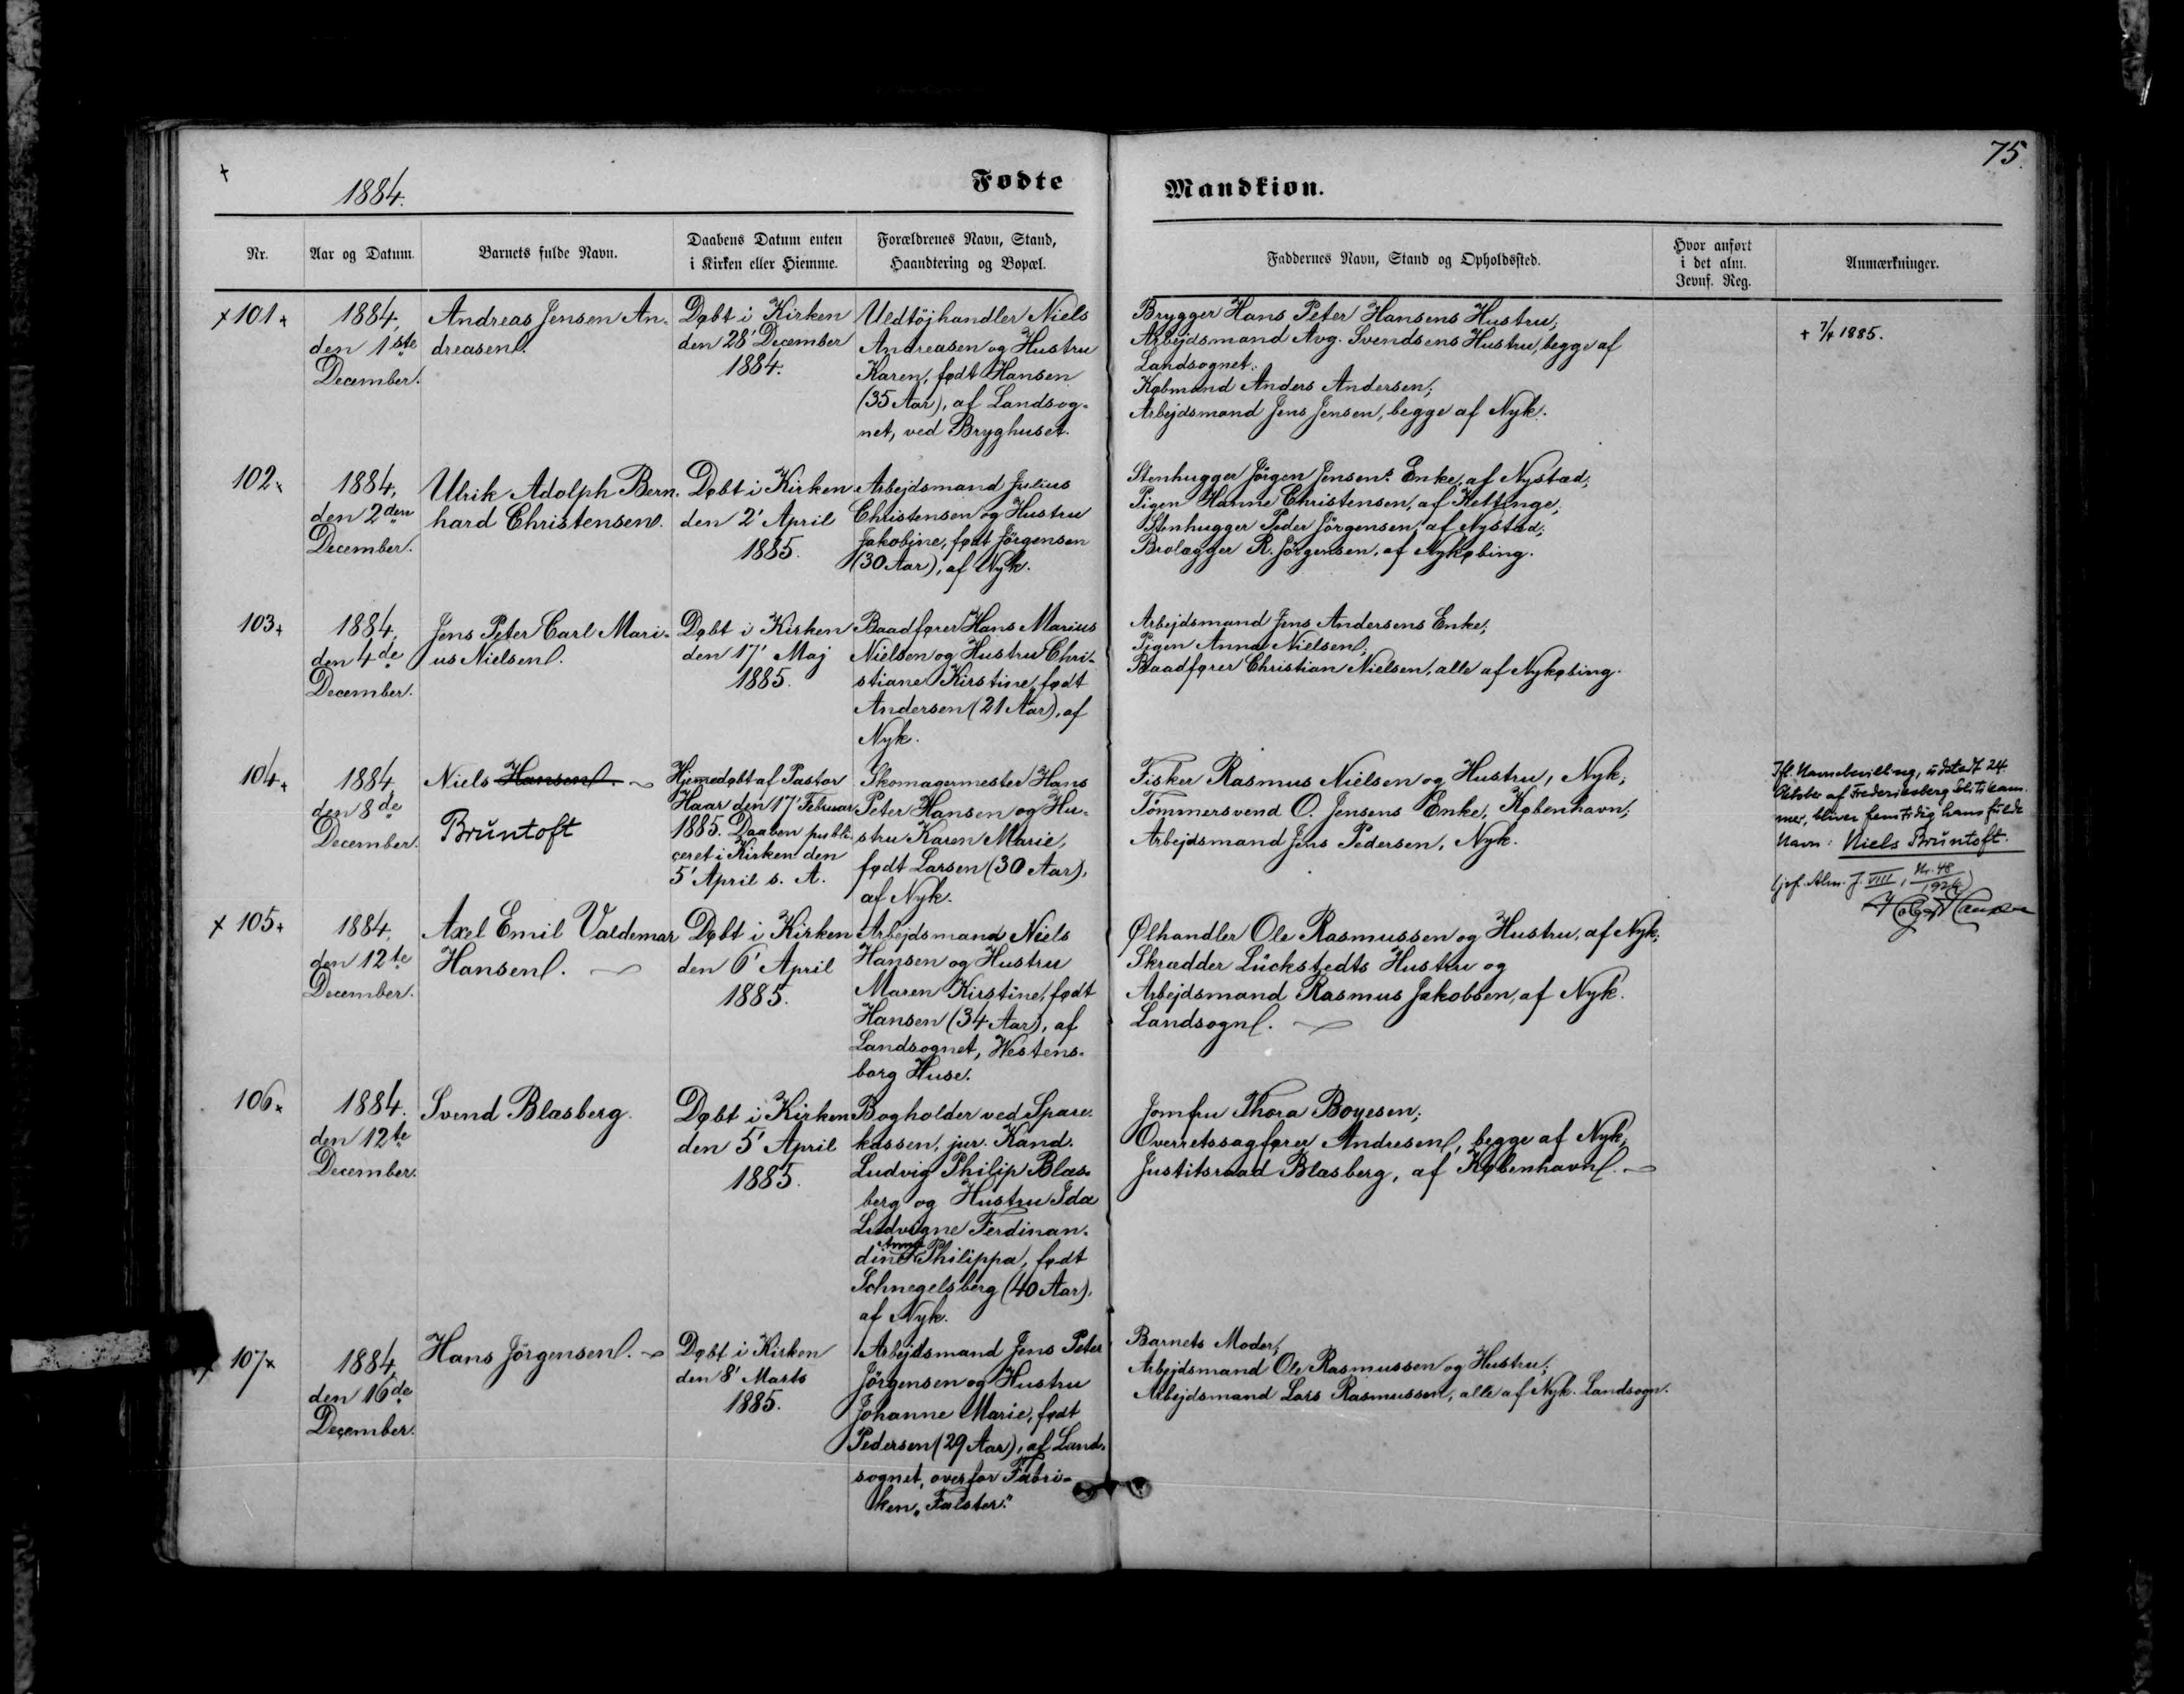 75.
1884.
Fødte
Mandkiøn.
Nr.
Aar og Datum.
Barnets fulde Navn.
Daabens Datum enten
i Kirken eller Hiemme.
Forældrenes Navn, Stand,
Haandtering og Bopæl.
Faddernes Navn, Stand og Opholdssted.
Hvor anført
i det alm.
Jevnf. Reg.
Anmærkninger.
101
1884,
den 1ste
December.
Andreas Jensen An-
dreasen.
Døbt i Kirken
den 28' December
1884.
Uldtøjhandler Niels
Andreasen og Hustru
Karen, født Hansen
(35 Aar), af Landsog-
net, ved Bryghuset.
Brygger Hans Peter Hansens Hustru,
Arbejdsmand Avg. Svendsens Hustru, begge af
Landsognet.
Købmand Anders Andersen;
Arbejdsmand Jens Jensen, begge af Nyk.
+ 7/4 1885.
102
1884,
den 2den
December.
Ulrik Adolph Bern-
hard Christensen.
Døbt i Kirken
den 2' April
1885.
Arbejdsmand Julius
Christensen og Hustru
Jakobine, født Jörgensen
(30 Aar), af Nyk.
Stenhugger Jörgen Jensens Enke, af Nystad;
Pigen Hanne Christensen, af Kettinge;
Stenhugger Peder Jörgensen, af Nystad;
Brolægger R. Jörgensen, af Nykøbing.
103
1884,
den 4de
December.
Jens Peter Carl Mari-
us Nielsen.
Døbt i Kirken
den 17' Maj
1885.
Baadfører Hans Marius
Nielsen og Hustru Chri-
stiane Kirstine, født
Andersen (21 Aar), af
Nyk.
Arbejdsmand Jens Andersens Enke;
Pigen Anna Nielsen;
Baadfører Christian Nielsen, alle af Nykøbing.
104
1884,
den 8de
December.
Niels Hansen.
Bruntoft
Hjemedøbt af Pastor
Haar den 17' Februar
1885. Daaben publi-
ceret i Kirken den
5' April s. A.
Skomagermester Hans
Peter Hansen og Hu-
stru Karen Marie,
født Larsen (30 Aar),
af Nyk.
Fisker Rasmus Nielsen og Hustru, Nyk;
Tömmersvend O. Jensens Enke, København;
Arbejdsmand Jens Pedersen, Nyk.
Ifl. Navnebevilling, udstedt 24.
Oktober af Frederiksberg Politikam-
mer, bliver fremtidig hans fulde
Navn: Niels Bruntoft.
(jvf. Alm. J. VIII, Nr. 48
1924)
105
1884,
den 12te
December.
Axel Emil Valdemar
Hansen.
Døbt i Kirken
den 6' April
1885.
Arbejdsmand Niels
Hansen og Hustru
Maren Kirstine, født
Hansen (34 Aar), af
Landsognet, Westens-
borg Huse.
Ølhandler Ole Rasmussen og Hustru, af Nyk;
Skrædder Lückstedts Hustru og
Arbejdsmand Rasmus Jakobsen, af Nyk.
Landsogn.
106
1884.
den 12te
December.
Svend Blasberg.
Døbt i Kirken
den 5' April
1885.
Bogholder ved Spare-
kassen, jur. Kand.
Ludvig Philip Blas-
berg og Hustru Ida
Ludvigne Ferdinan-
Anna
dine Philippa, født
Schnegelsberg (40 Aar),
af Nyk.
Jomfru Thora Boyesen;
Overretssagfører Andresen, begge af Nyk;
Justitsraad Blasberg, af København.
107
1884,
den 16de
December.
Hans Jörgensen.
Døbt i Kirken
den 8' Marts
1885.
Arbejdsmand Jens Peter
Jörgensen og Hustru
Johanne Marie, født
Pedersen (29 Aar), af Land-
sognet, overfor Fabri-
ken „Falster."
Barnets Moder;
Arbejdsmand Ole Rasmussen og Hustru;
Arbejdsmand Lars Rasmussen, alle af Nyk. Landsogn.